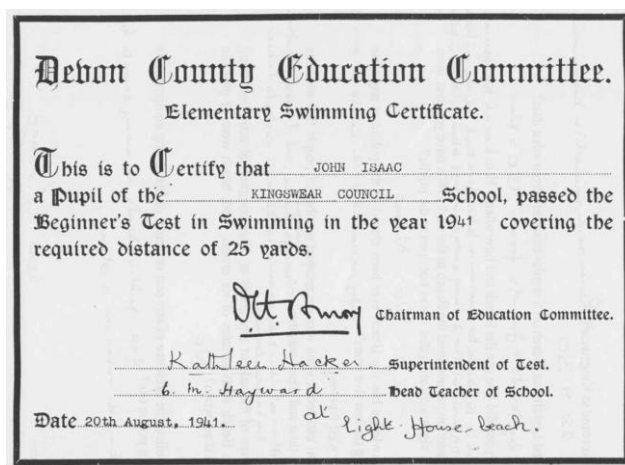 Devon County Education Committee.
Elementary Swimming Certificate.
This is to Certify that JOHN ISAAC
a Pupil of the KINGSWEAR COUNCIL School, passed the
Beginner's Test in Swimming in the year 1941 covering the
required distance of 25 yards.
Chairman of Education Committee.
Kathleen Hacker. Superintendent of Test.
Hayward Head Teacher of School.
Date 20th August, 1941. at Light House beach.